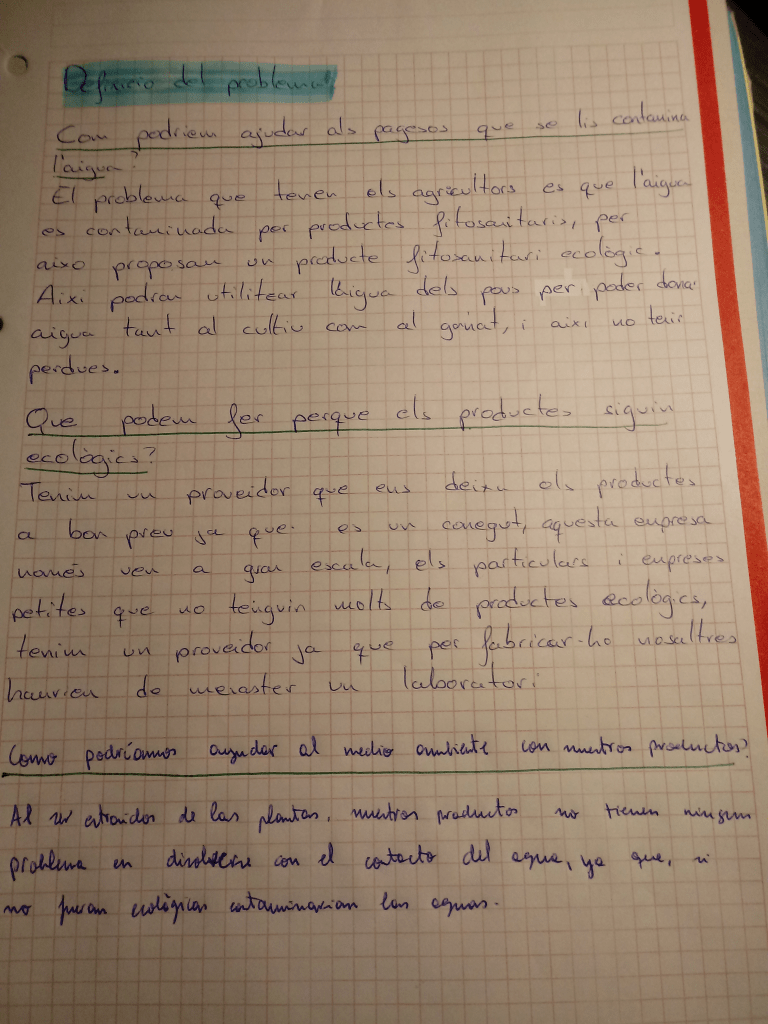 Definicio del problema
Com podriem ajudar als pagesos que se lis contamina
l'aigua?
El problema que tenen els agricultors es que l'aigua
es contaminada per productes fitosanitaris, per
aixo proposam un producte fitosanitari ecològic.
Aixi podran utilitzar l'aigua dels pous per poder donar
aigua tant al cultiu com al goriat, i aixi no tenir
perdues.
Que podem fer perque els productes siguin
ecològics?
Tenim un proveidor que ens deixa els productes
a bon preu ja que es un conegut, aquesta empresa
només ven a gran escala, els particulars i empreses
petites que no tenguin molts de productes ecològics,
tenim un proveidor ja que per fabricar-ho nosaltres
hauriem de menaster un laboratori
Como podríamos ayudar al medio ambiente con nuestros productos?
Al ser extraidos de las plantas, nuestros productos no tienen ningun
problema en disolverse con el contacto del agua, ya que, si
no fueran ecológicos contaminarian las aguas.